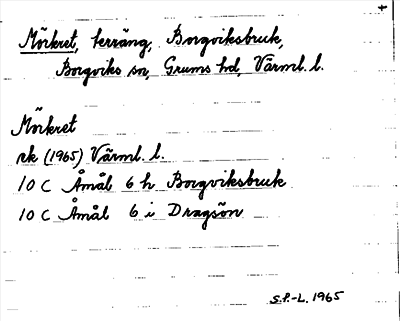 +
Mörkret, terräng, Borgviksbruk,
Borgviks sn, Grums hd, Värml. l.
Mörkret
rk (1965) Värml. l.
10 C Åmål 6 h Borgviksbruk
10 C Åmål 6 i Dragsön
S.P.-L. 1965